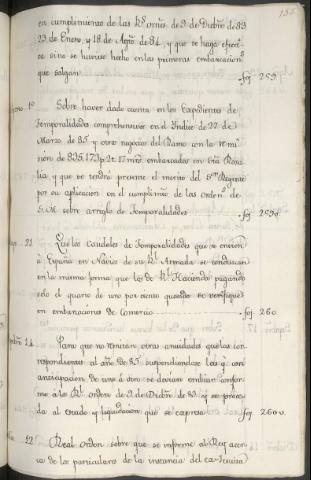 155
en cumplimiento de las Rs. ornes. de 9 de Dizbre de 83
23 de Enero, y 18 de Agto. de 84, y que se haga efecti-
vo si no se huviese hecho en las primeras embarcaciones
que salgan foj. 259.
1º Sobre haver dado cuenta en los Expedientes de
Temporalidades comprehensivos en el Yndice de 27 de
Marzo de 85 y otro negocios del Ramo con la remi-
sion de 835.173 p. 2 r. 17 mrs embarcados en
y que se tendrá presente el merito del Sor. Regente
por su aplicacion en el cumplimto. de las orden.s de
S.M. sobre arreglo de Temporalidades foj. 259v.
21 Que los Caudales de Temporalidades que se envien
á España en Navios de su Rl. Armada se conduzcan
en la misma forma que los de Rl. Hacienda pagando
solo el quarto de uno por ciento quando se verifique
en embarcaciones de Comercio foj. 260.
24 Para que no remitan otras anuidades que las cor-
respondientes al año de 85 suspendiendose las q. con
anticipacion de uno á otro se devian embiar confor-
me á la Rl. orden de 9 de Dizbre. de 83 y se proce-
da al estado y liquidacion que se expresa foj. 260v.
22 Real orden sobre que se informe al Rey acer-
ca de los particulares de la instancia del ex-Jesuita